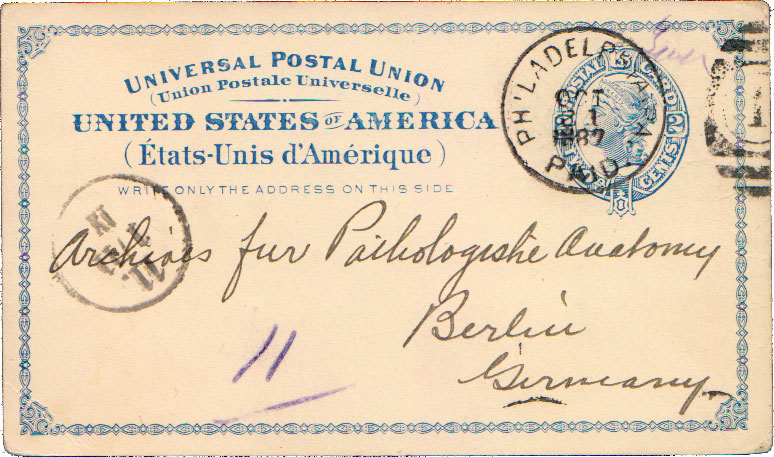 UNIVERSAL POSTAL UNION
(Union Postale Universelle)
UNITED STATES OF AMERICA
(États-Unis d'Amérique)
WRITE ONLY THE ADDRESS ON THIS SIDE
PHILADELPHIA, PA.
OCT
1
P.O.D.
CENTS
Archives fur Pathologishe Anatomy
Berlin
Germany
11